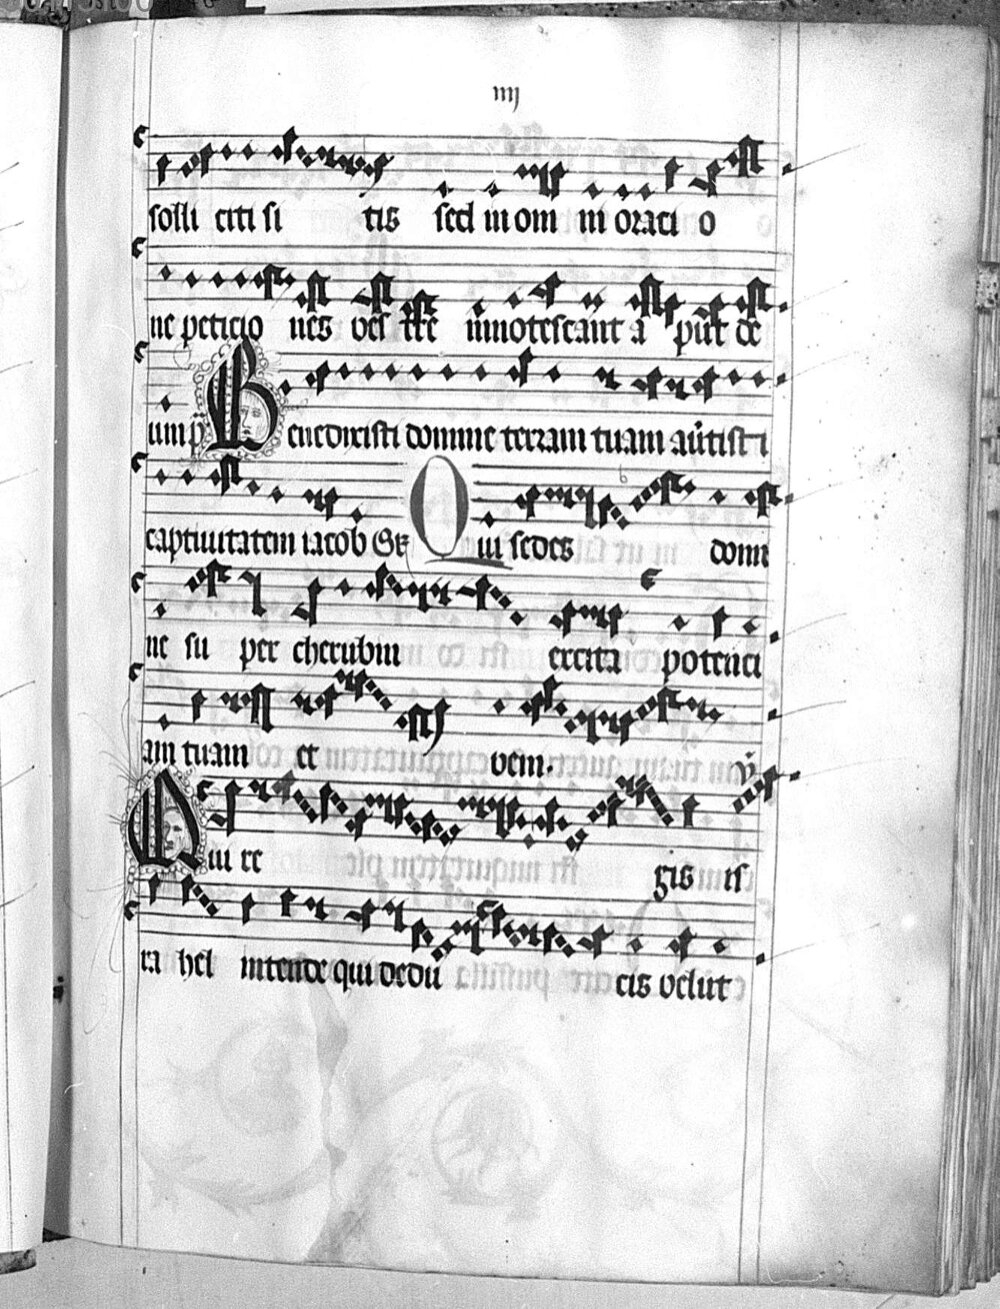 iiij
solli citi si tis sed in om ni oraci o
ne peticio nes ves innotescant a put de
um Benedixisti domine terram tuam
captiuitatem iacob Qui sedes domi
ne su per cherubin excita potenci
am tuam et veni.
Qui re gis is
ra hel intende qui dedu cis velut